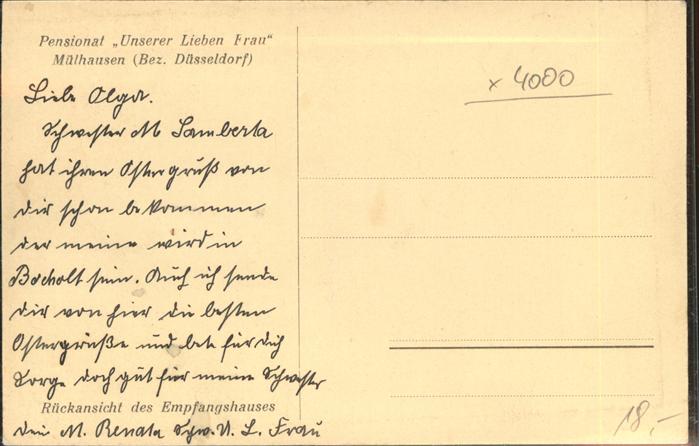 Pensionat „Unserer Lieben Frau"
Mülhausen (Bez. Düsseldorf)
Liebe Olga.
Schwester M Lamberta
hat ihren Ostergruß von
dir schon bekommen
der meine wird in
Bocholt sein. Auch ich sende
dir von hier die besten
Ostergrüße und bete für dich
Sorge doch gut für meine Schwester
Rückansicht des Empfangshauses
dein M. Renata Schw. U. L. Frau
x 4000
18,-